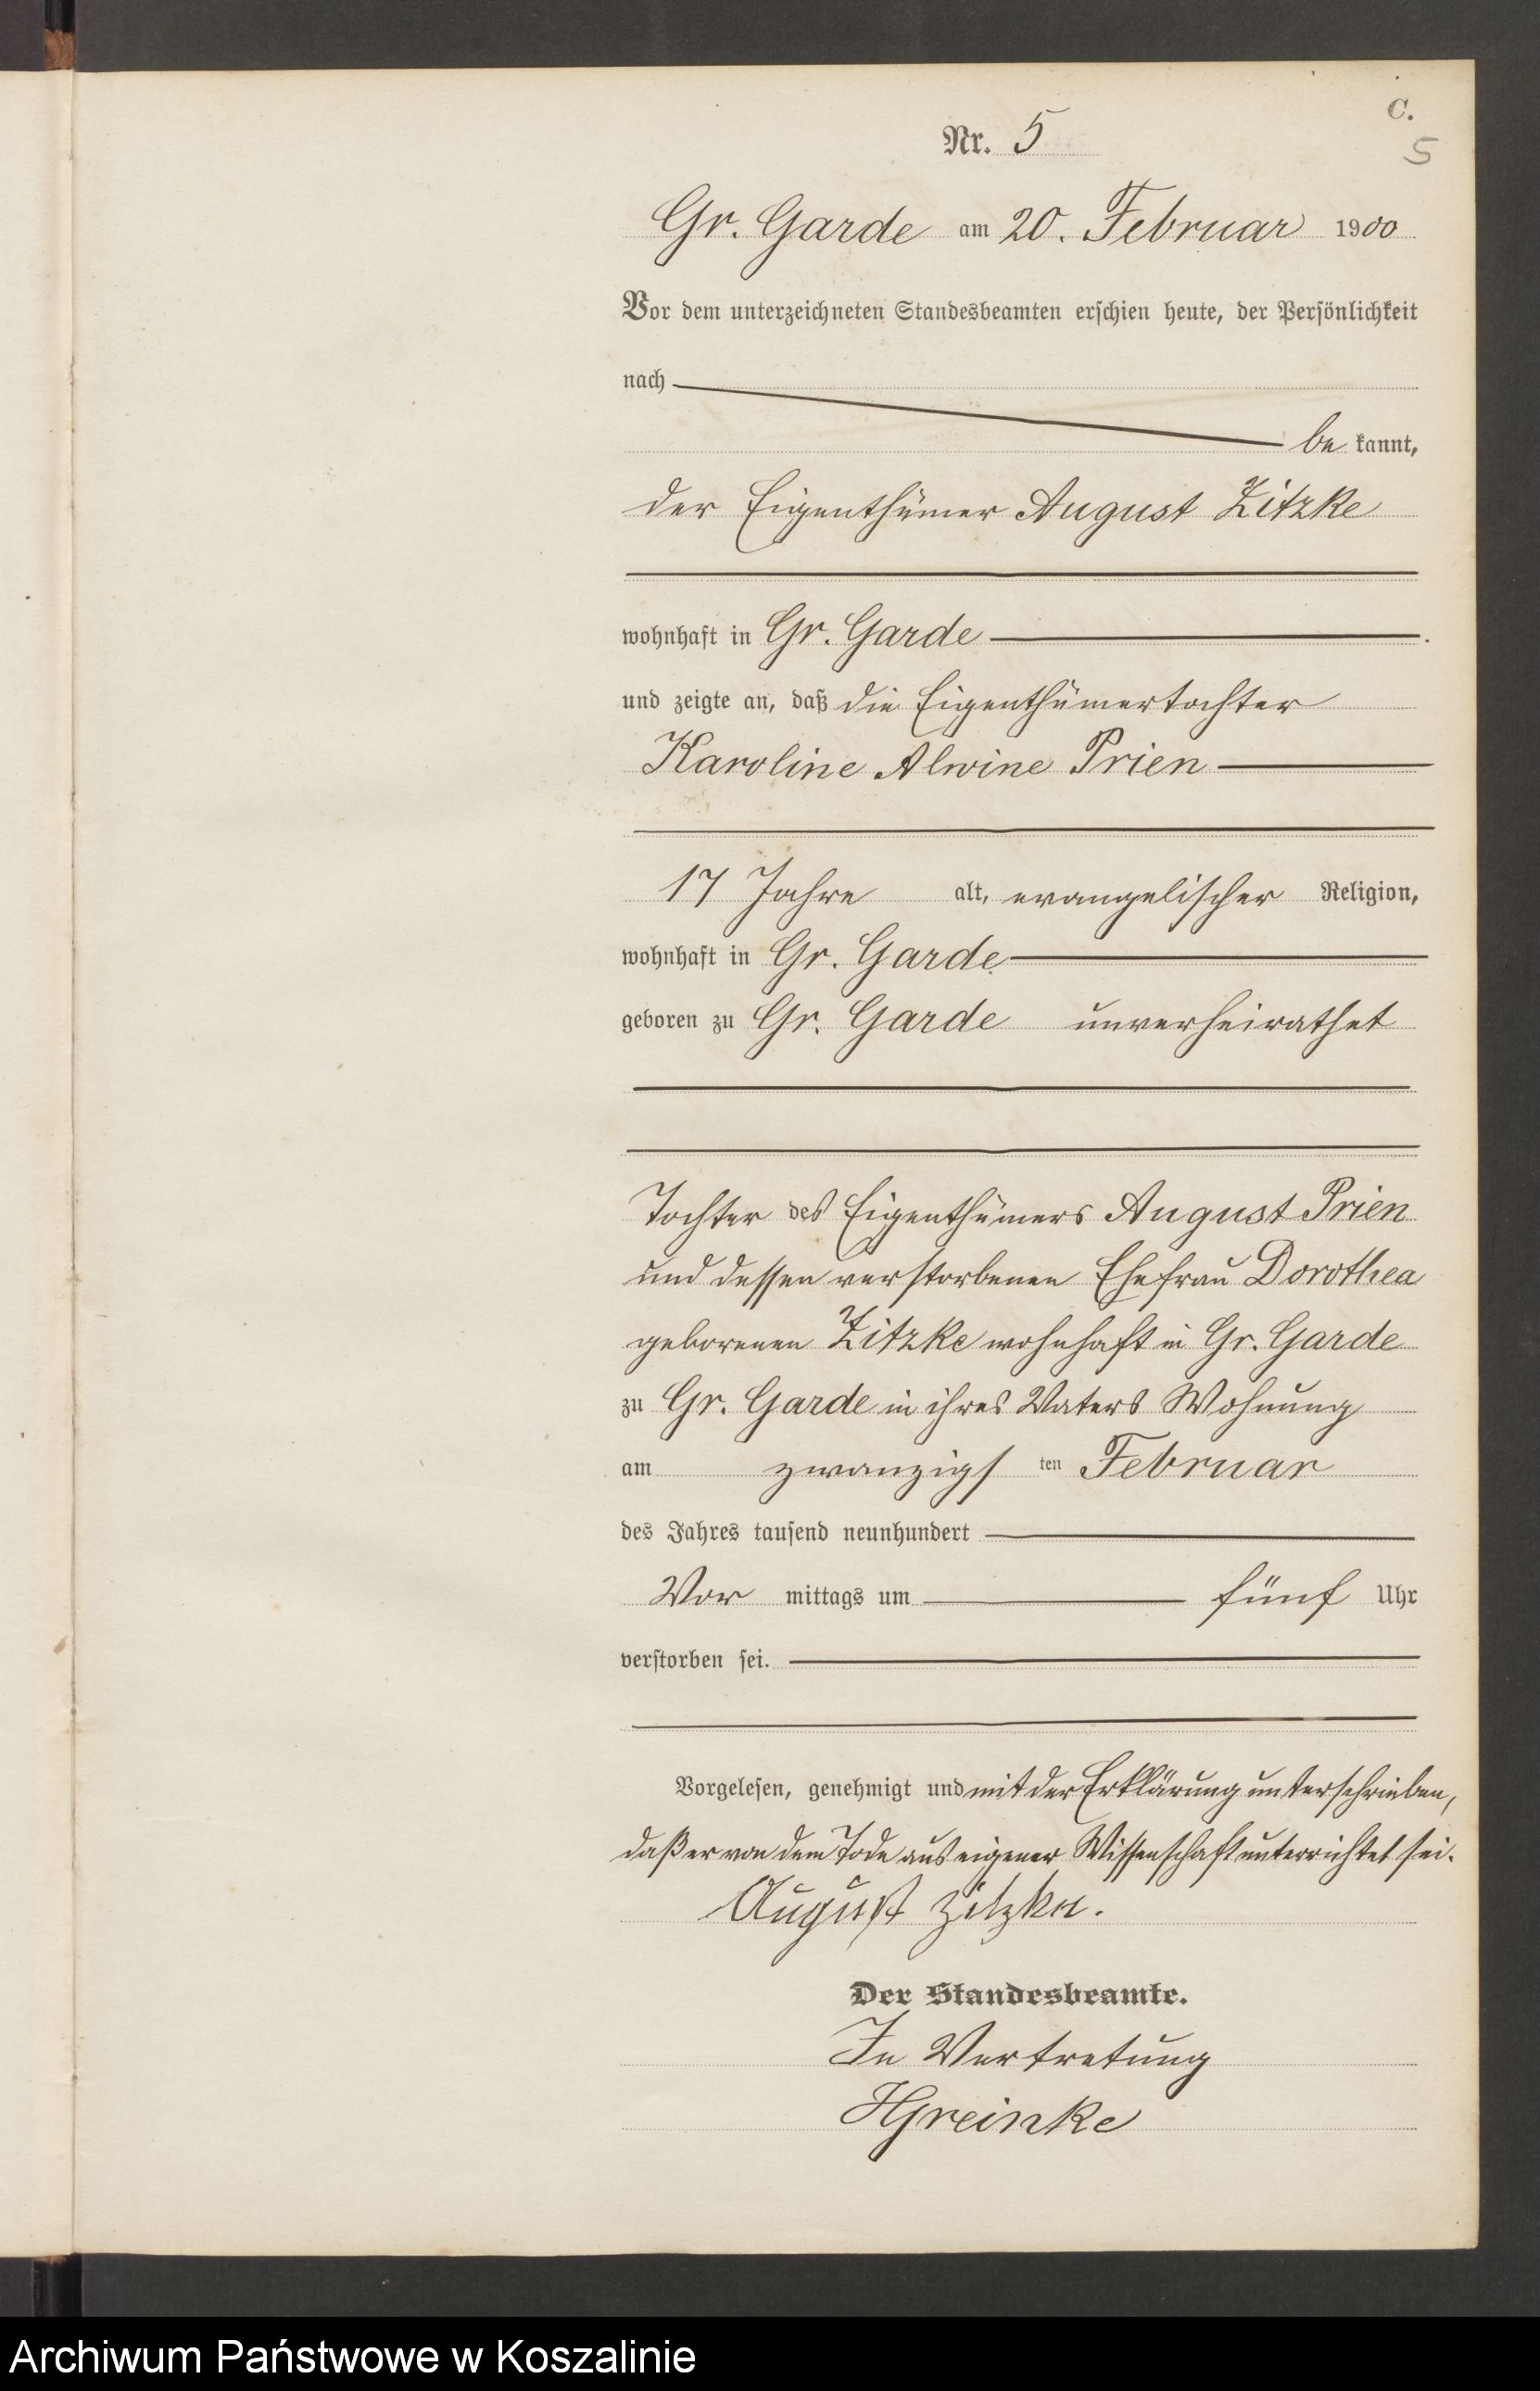 C.
Nr. 5
5
Gr. Garde am 20. Februar 1900
Vor dem unterzeichneten Standesbeamten erschien heute, der Persönlichkeit
nach
be kannt,
der Eigenthümer August Zitzke
wohnhaft in Gr. Garde
und zeigte an, daß die Eigenthümertochter
Karoline Alwine Prien
17 Jahre alt, evangelischer Religion,
wohnhaft in Gr. Garde
geboren zu Gr. Garde unverheirathet
Tochter des Eigenthümers August Prien
und dessen verstorbenen Ehefrau Dorothea
geborenen Zitzke wohnhaft in Gr. Garde
zu Gr. Garde in ihres Vaters Wohnung
am zwanzigs ten Februar
des Jahres tausend neunhundert
Vor mittags um fünf Uhr
verstorben sei.
Vorgelesen, genehmigt und mit der Erklärung unterschrieben,
daß er von dem Tode aus eigener Wissenschaft unterrichtet sei.
August Zitzke.
Der Standesbeamte.
In Vertretung
HGreinke
Archiwum Państwowe w Koszalinie